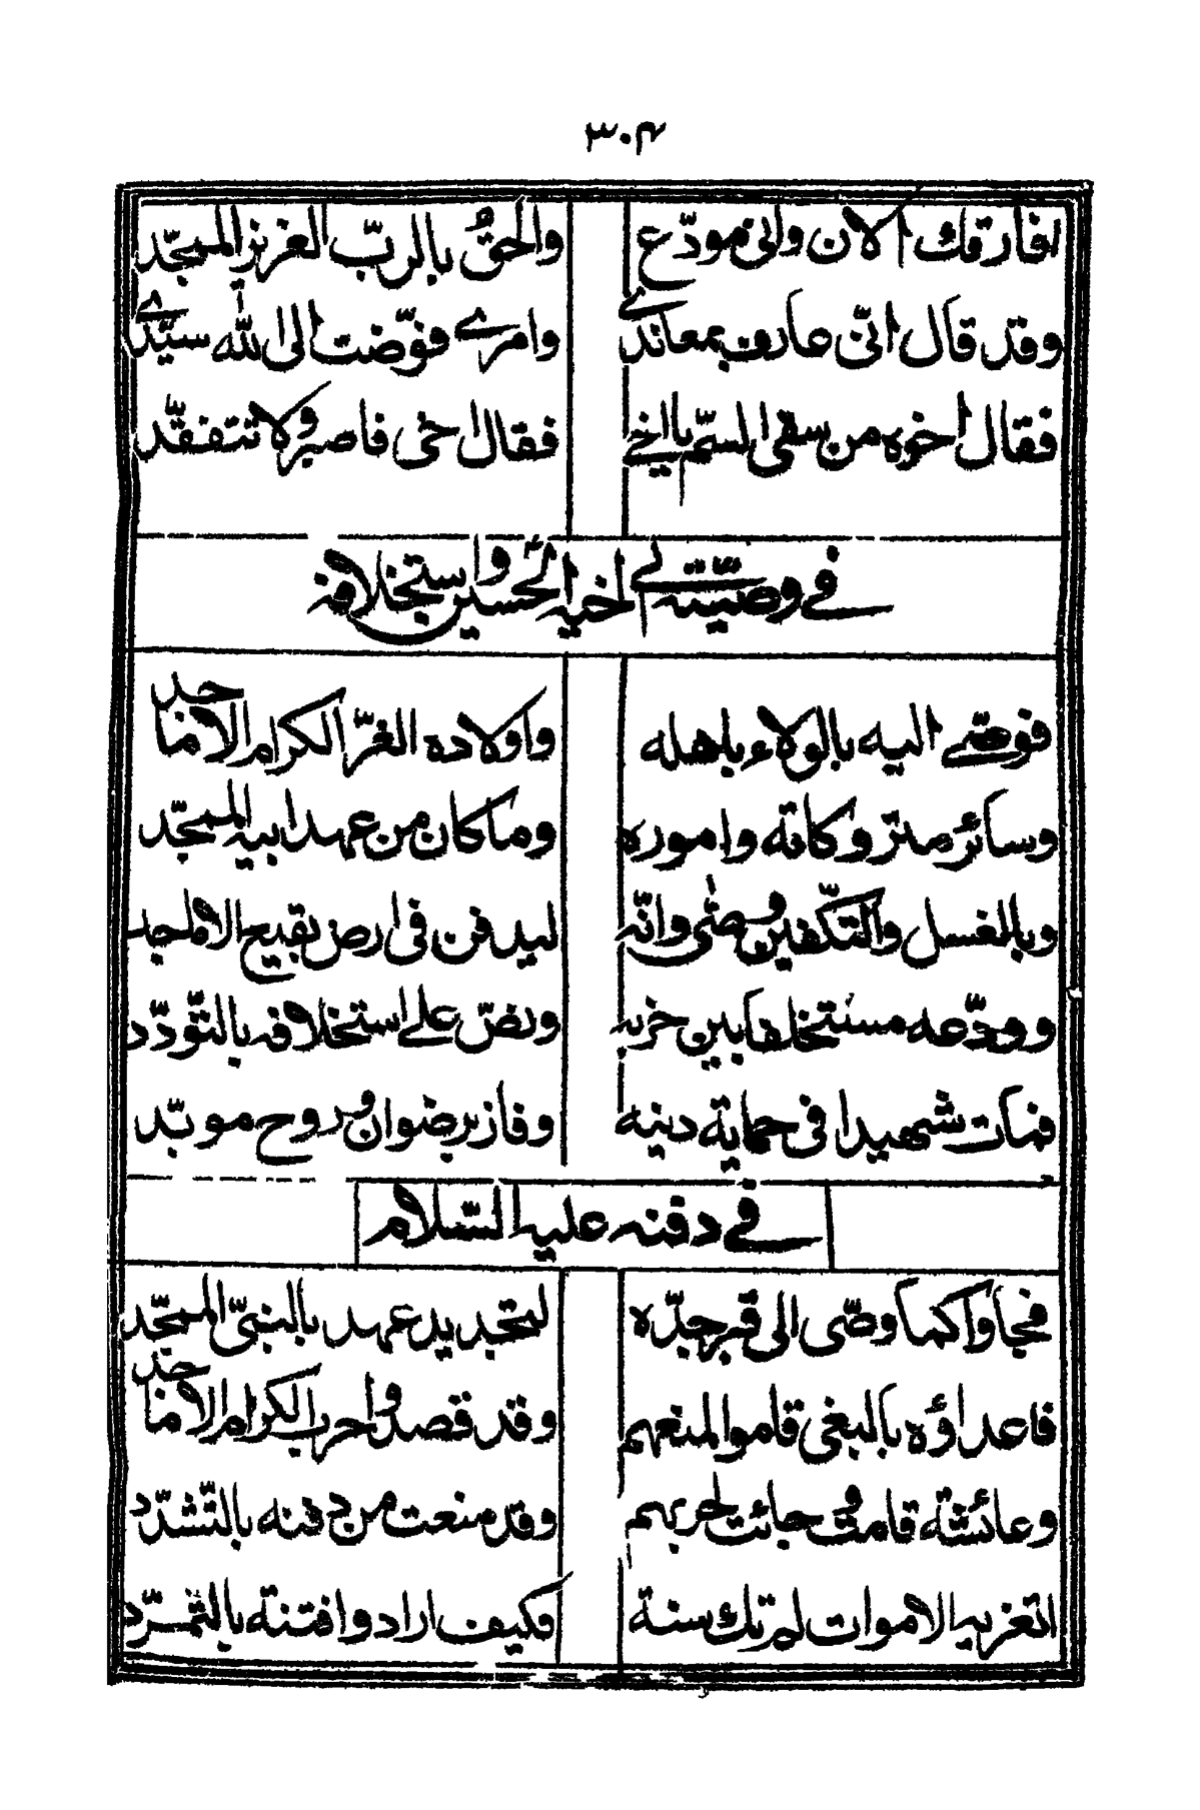 ٣٠٤
افارقك الان وانى مودّع والحقُ بالربّ العزيز الممجّد
وقد قال انّى عارف بمعاندے وامرے فوّضت الى الله سيّدے
فقال اخوه من سقى السّم يا اخے فقال اخى فاصبر ولا تتفقّد
فے وصيّته الے اخيه الحسين واستخلافه
فوصّے اليه بالولاء باهله واولاده الغرّ الكرام الاماجد
وسائر متروكاته واموره وما كان من عهد ابيه الممجّد
وبالغسل والتكّفين وصّى وانّه ليدفن فى ارض بقيع الاماجد
وودّعه مستخلفا بين حزبه ونصّ علے استخلافه بالتّودّد
فمات شهيدا فى حماية دينه وفاز برضوان وروح موبّد
فے دفنه عليه السّلام
فجاؤا كما وصّى الى قبر جدّه لتجديد عهد بالنبىّ الممجّد
فاعداؤه بالبغى قاموا لمنعهم وقد قصدوا حرب الكرام الاماجد
وعائشة قامت وجائت لحربهم وقد منعت من دفنه بالتّشدّد
اتعزيه الاموات لم تك سنة فكيف ارادوا فتنة بالتّمرّد